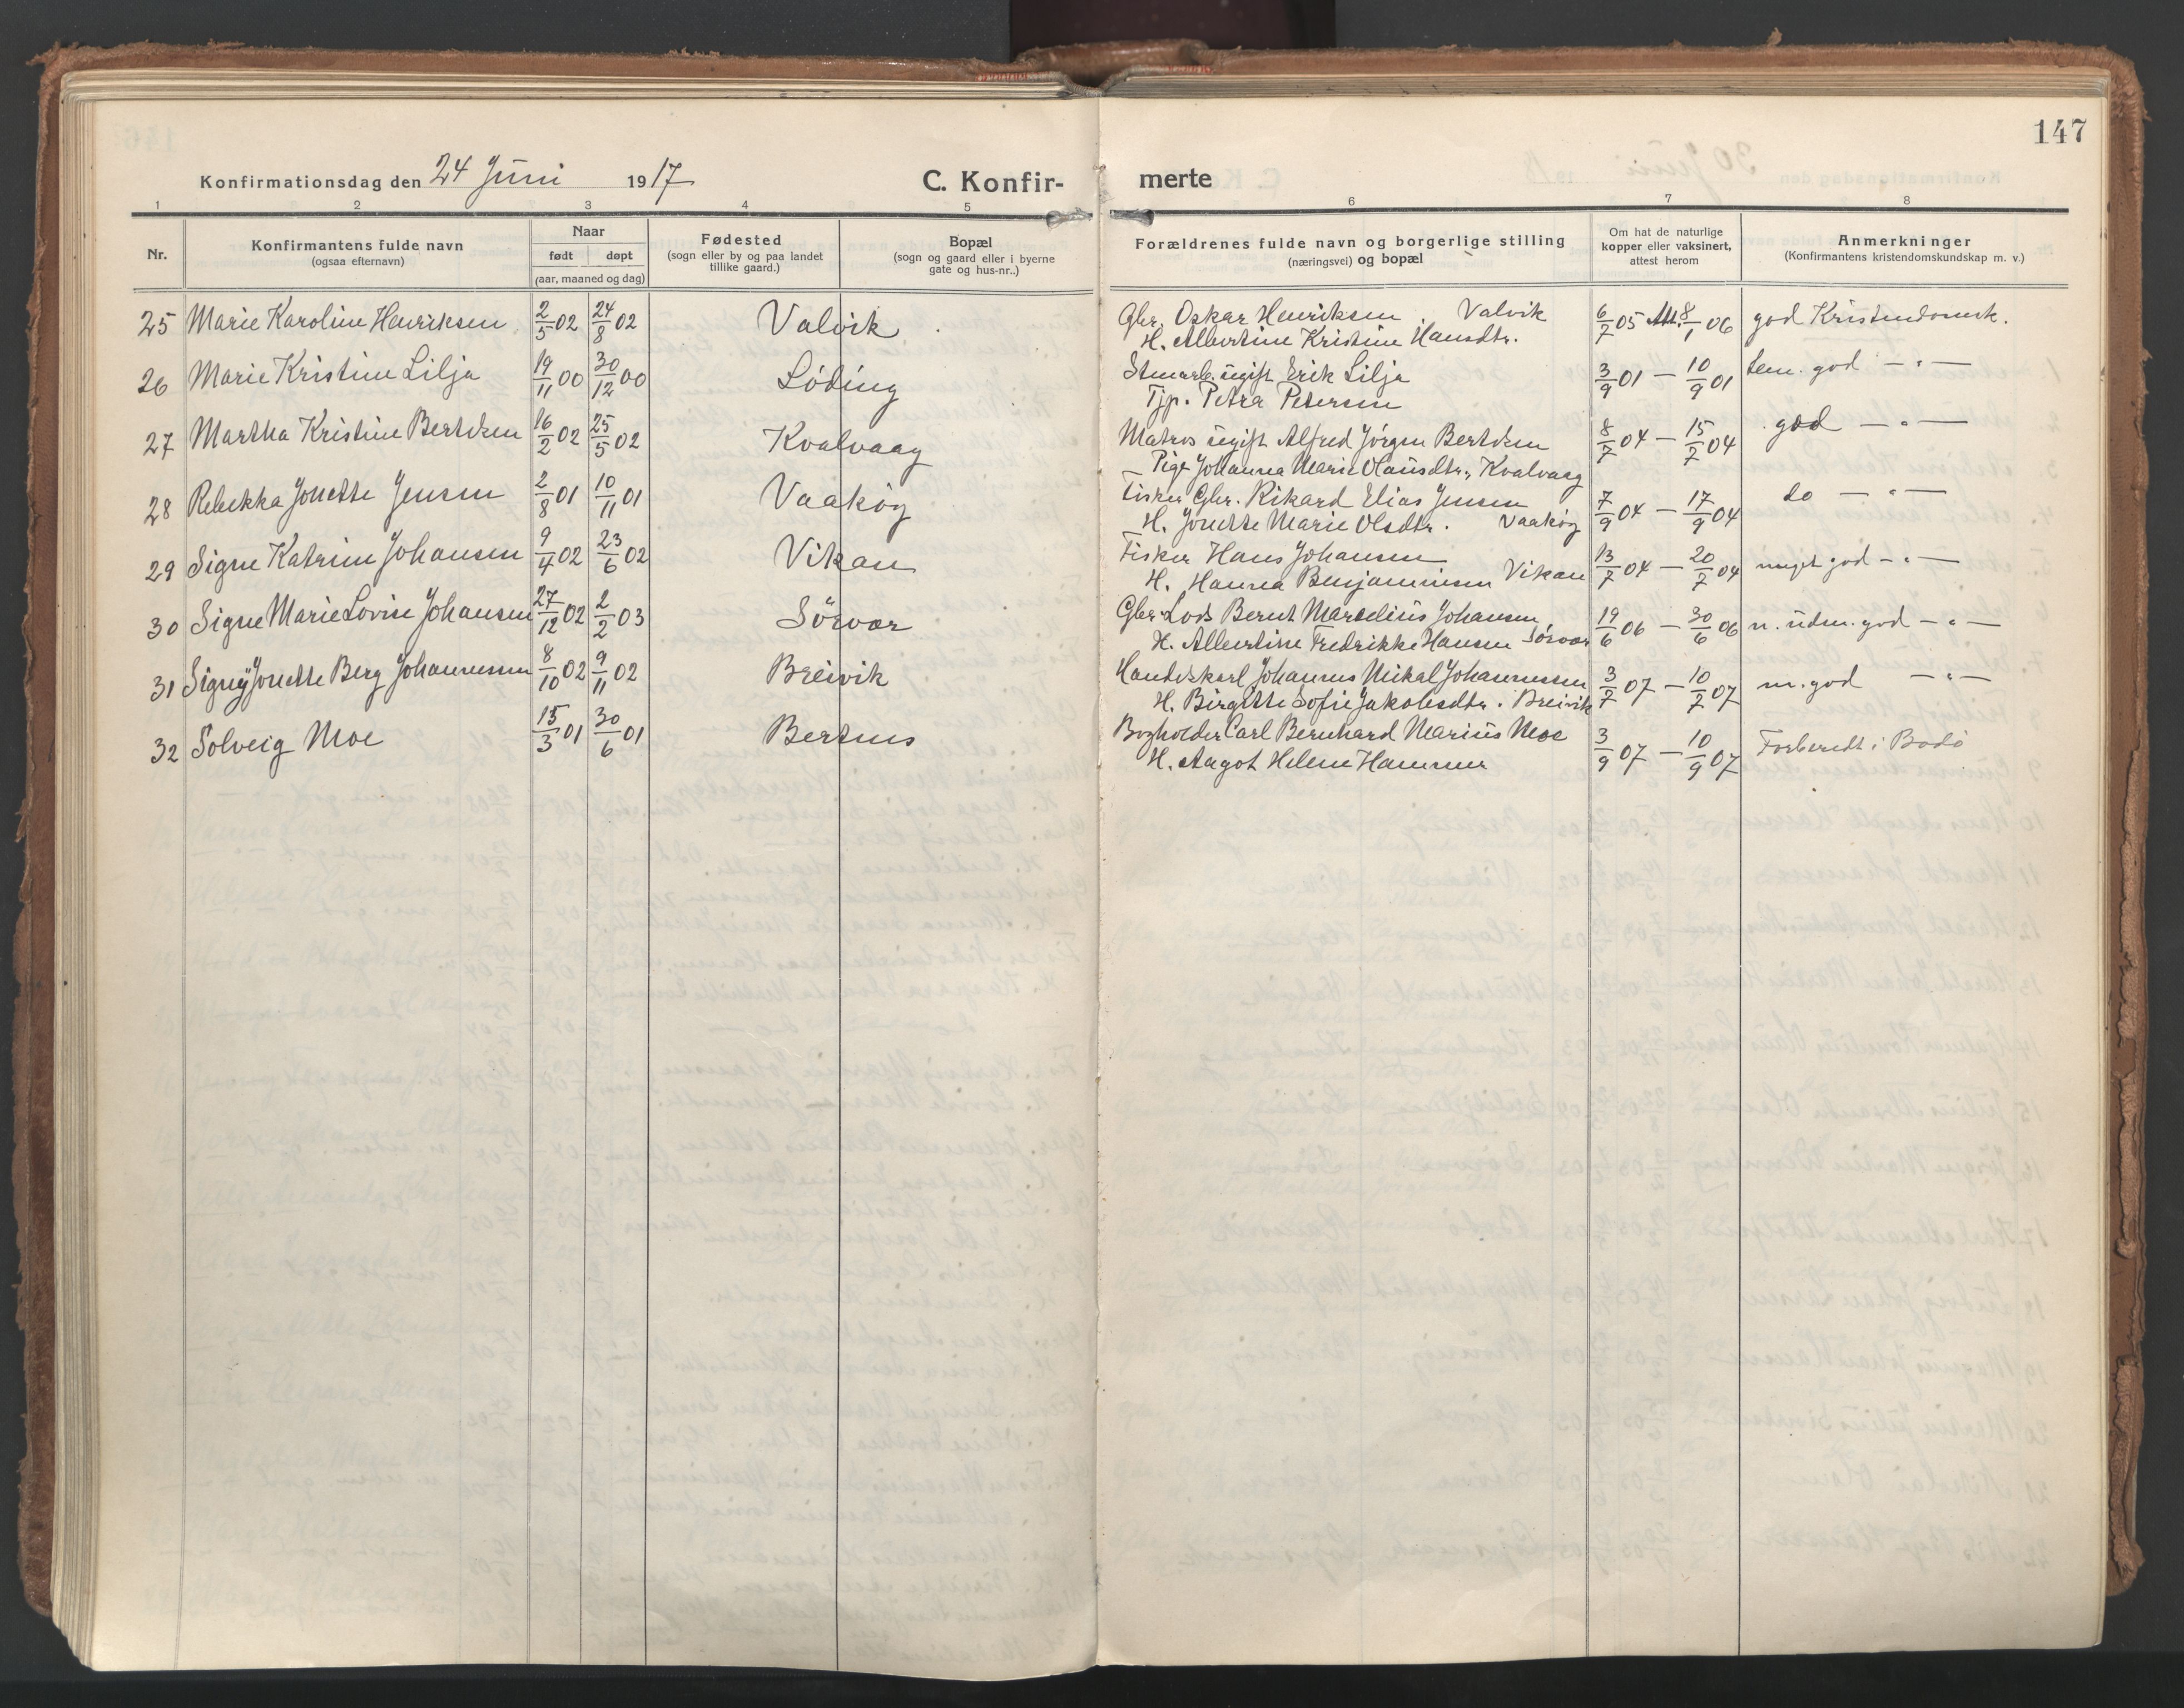 147
Konfirmationsdag den 24 Juni 1917
C. Konfir-
merte
1 2 3 4 5 6 7 8
Nr.
Konfirmantens fulde navn
(ogsaa efternavn)
Naar
født døpt
(aar, maaned og dag)
Fødested
(sogn eller by og paa landet
tillike gaard.)
Bopæl
(sogn og gaard eller i byerne
gate og hus-nr..)
Forældrenes fulde navn og borgerlige stilling
(næringsvei) og bopæl
Om hat de naturlige
kopper eller vaksinert,
attest herom
Anmerkninger
(Konfirmantens kristendomskundskap m. v.)
25 Marie Karoline Henriksen 2/5 02 24/8 02 Valvik Gbr. Oskar Henriksen. Valvik 6/7 05 Att. 8/1 06 god Kristendomsk.
H. Albertine Kristine Hansdtr.
26 Marie Kristine Lilja 19/11 00 30/12 00 Löding Stenarb. ugift Erik Lilja 3/9 01 — 10/9 01 tem. god — " —
Tjp. Petra Petersen
27 Martha Kristine Bertdsen 16/2 02 25/5 02 Kvalvaag Matros ugift Alfred Jörgen Bertdsen 8/7 04 — 15/7 04 god — " —
Pige Johanna Marie Olausdtr., Kvalvaag
28 Rebekka Jonette Jensen 2/8 01 10/11 01 Vaaköy Fisker Gbr. Rikard Elias Jensen 7/9 04 — 17/9 04 do — " —
H. Jonette Marie Olsdtr. Vaaköy
29 Signe Katrine Johansen 9/4 02 23/6 02 Vikan Fisker Hans Johansen 13/7 04 — 20/7 04 meget god — " —
H. Hanna Benjaminsen Vikan
30 Signe Marie Lovise Johansen 27/12 02 2/2 03 Sörvær Gbr. Lods Bernt Marselius Johansen 19/6 06 — 30/6 06 n. udm. god — " —
H. Albertine Fredrikke Hansen Sörvær
31 Signy Jonette Berg Johannessen 8/10 02 9/11 02 Breivik Handelskarl Johannes Mikal Johannessen 3/7 07 — 10/7 07 m. god — " —
H. Birgitte Sofie Jakobsdtr. Breivik
32 Solveig Moe 15/3 01 30/6 01 Bertnes Bogholder Carl Bernhard Marius Moe 3/9 07 — 10/9 07 Forberedt i Bodö
H. Aagot Helene Hammer